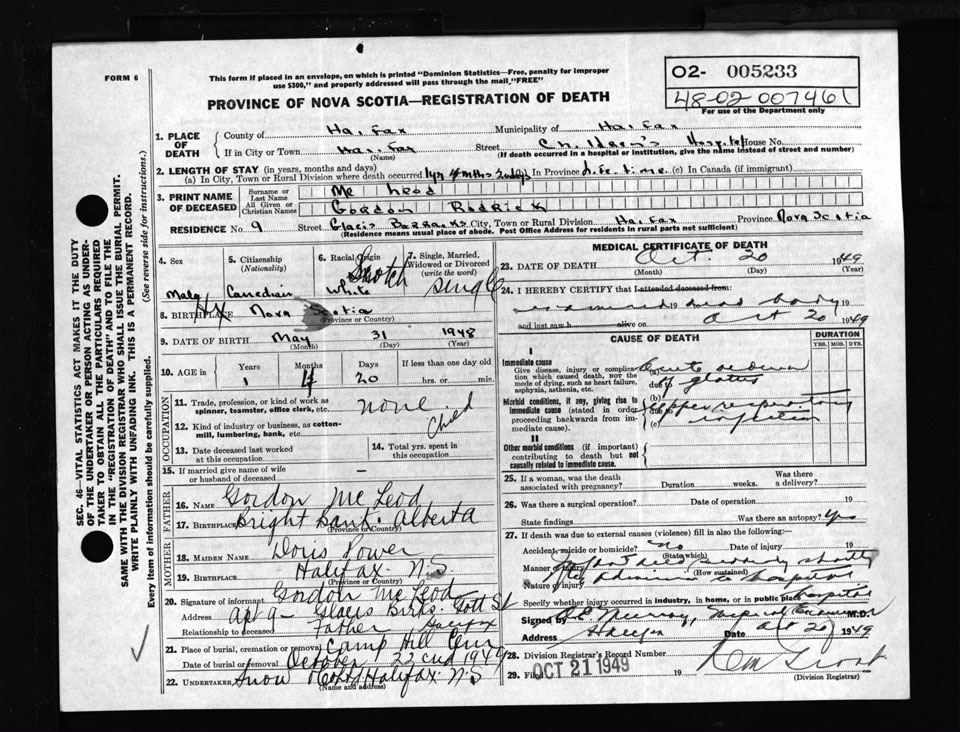 FORM 6
This form if placed in an envelope, on which is printed "Dominion Statistics—Free, penalty for improper
use $300," and properly addressed will pass through the mail, "FREE"
PROVINCE OF NOVA SCOTIA—REGISTRATION OF DEATH
02- 005233
48-02-007461
For use of the Department only
SEC. 46—VITAL STATISTICS ACT MAKES IT THE DUTY
OF THE UNDERTAKER OR PERSON ACTING AS UNDER-
TAKER TO OBTAIN ALL THE PARTICULARS REQUIRED
IN THE "REGISTRATION OF DEATH" AND TO FILE THE
SAME WITH THE DIVISION REGISTRAR WHO SHALL ISSUE THE BURIAL PERMIT.
WRITE PLAINLY WITH UNFADING INK. THIS IS A PERMANENT RECORD.
Every item of information should be carefully supplied. (See reverse side for instructions.)
1. PLACE OF DEATH
County of Halifax Municipality of Halifax
If in City or Town Halifax Street Children's Hospital House No.
(Name) (If death occurred in a hospital or institution, give the name instead of street and number)
2. LENGTH OF STAY (in years, months and days)
(a) In City, Town or Rural Division where death occurred 1yr 4mths 20dys In Province Life time (c) In Canada (if immigrant)
3. PRINT NAME OF DECEASED
Surname or Last Name Mc Leod
All Given or Christian Names Gordon Rodrick
RESIDENCE No. 9 Street Glacis Barracks City, Town or Rural Division Halifax Province Nova Scotia
(Residence means usual place of abode. Post Office Address for residents in rural parts not sufficient)
4. Sex Male
5. Citizenship (Nationality) Canadian
6. Racial Origin Scotch White
7. Single, Married, Widowed or Divorced (write the word) single
8. BIRTHPLACE Hx Nova Scotia
(Province or Country)
9. DATE OF BIRTH May 31 1948
(Month) (Day) (Year)
10. AGE in Years Months Days If less than one day old
1 4 20 hrs. or min.
OCCUPATION
11. Trade, profession, or kind of work as
spinner, teamster, office clerk, etc. none
12. Kind of industry or business, as cotton-
mill, lumbering, bank, etc. Child
13. Date deceased last worked
at this occupation
14. Total yrs. spent in
this occupation
15. If married give name of wife
or husband of deceased —
FATHER
16. Name Gordon McLeod
17. Birthplace Bright Bank. Alberta
(Province or Country)
MOTHER
18. Maiden Name Doris Power
19. Birthplace Halifax N.S.
(Province or Country)
20. Signature of informant Gordon McLeod
Address Apt 9 - Glacis Brks. Gott St
Relationship to deceased Father Halifax
21. Place of burial, cremation or removal Camp Hill Cem
Date of burial or removal October 22nd 1949
22. Undertaker Snow & Co Ltd Halifax N.S
(Name and address)
MEDICAL CERTIFICATE OF DEATH
23. DATE OF DEATH Oct. 20 1949
(Month) (Day) (Year)
24. I HEREBY CERTIFY that I attended deceased from:
examined dead body 19
and last saw h alive on Oct 20 1949
CAUSE OF DEATH
DURATION
YRS. MOS. DYS.
I
Immediate cause
Give disease, injury or complica-
tion which caused death, NOT the
mode of dying, such as heart failure,
asphyxia, asthenia, etc.
(a) Acute oedema
due to glottis
Morbid conditions, if any, giving rise to
immediate cause (stated in order
proceeding backwards from im-
mediate cause).
(b) upper respiratory
due to
(c) infection
II
Other morbid conditions (if important)
contributing to death but not
causally related to immediate cause.
25. If a woman, was the death
associated with pregnancy? Duration weeks. Was there a delivery?
26. Was there a surgical operation? Date of operation 19
State findings Was there an autopsy? Yes
27. If death was due to external causes (violence) fill in also the following:
Accident, suicide or homicide? No Date of injury 19
(State which)
Manner of injury Infant died suddenly shortly
(How sustained)
Nature of injury after admission to hospital
Specify whether injury occurred in industry, in home, or in public place hospital
Signed by Medical Examiner M.D.
Address Halifax Date Oct 20 1949
28. Division Registrar's Record Number
29. Filed OCT 21 1949 19
(Division Registrar)